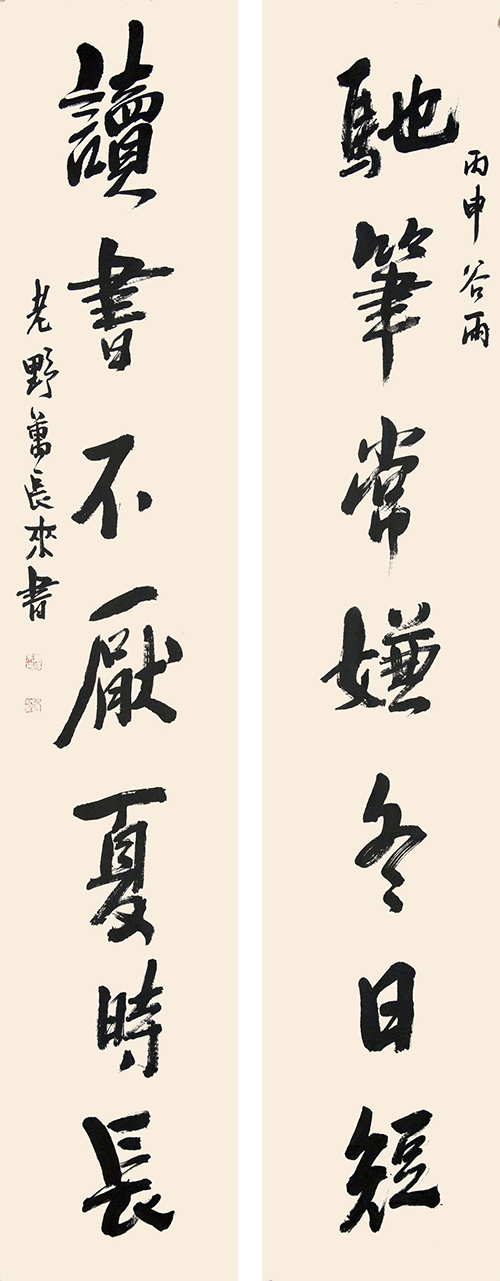 丙申谷雨
馳筆常嫌冬日短
讀書不厭夏時長
老野萬長來書